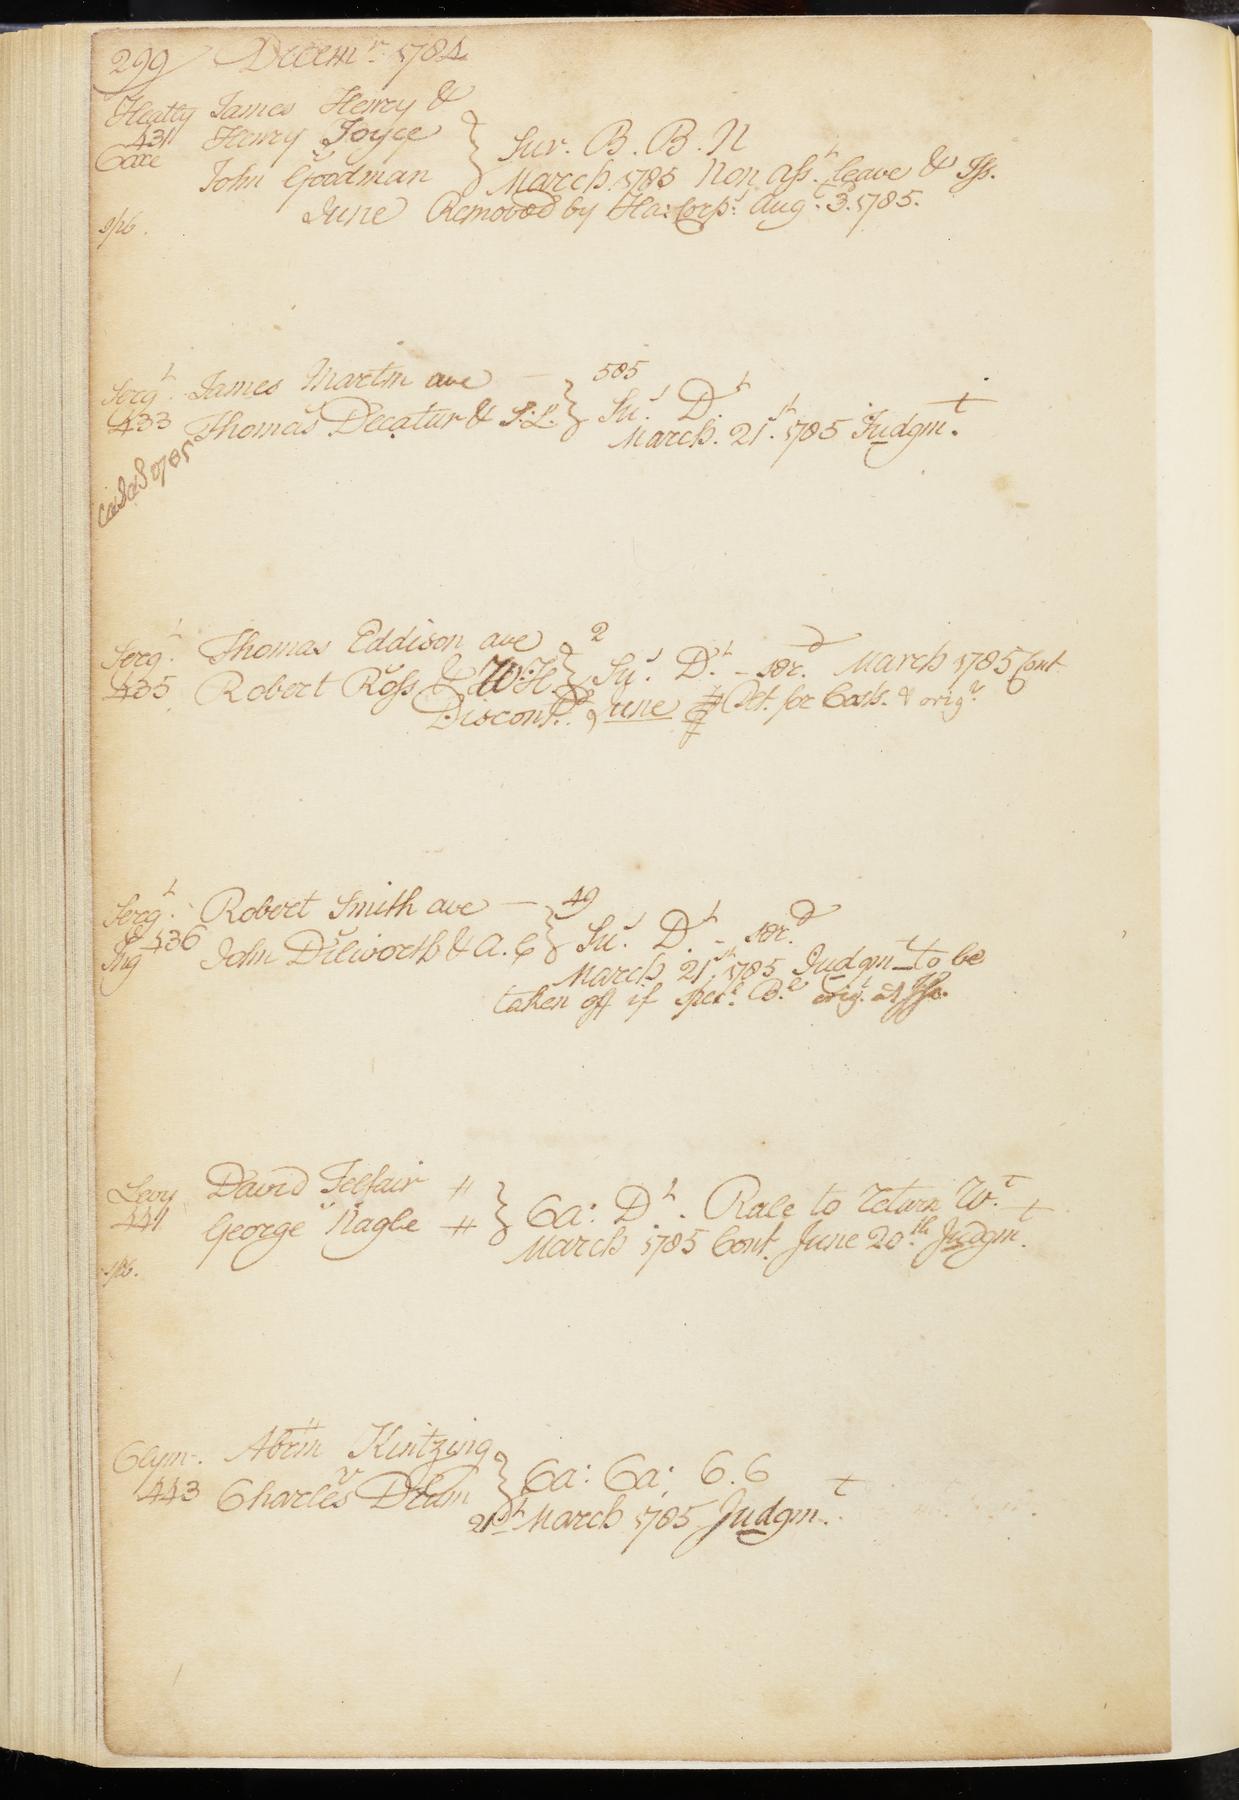 299 Decem.r 1784
Heatly James Henry &
431 Henry Joyce
Coxe John Goodman } Sur. B. B. N
March 1785 Non Ass.t leave & Iss.
June Removed by Ha: Corp.s Aug.t 3. 1785.
Serg.t James Martin ave — 505
433 v Thomas Decatur & S: L. } Su.s D.t
March. 21.st 1785 Judgm.t
Serg.t Thomas Eddison ave 2
435 v Robert Ross & W: H. } Su.s D.t - ser.d March 1785 Cont
Discont.d June for Costs. & orig.l
Serg.t Robert Smith ave — 49
& 436 v John Dilworth & A. C } Su.s D.t - ser.d
Ing March 21.st 1785 Judgm.t to be
taken off if Spec.l B.l
Levy David Telfair #
441 v George Nagle # } Ca: D.t. Rule to return W.t
March 1785 Cont. June 20.th Judgm.t
Clym. Abrm Kintzing
443 v Charles Drum } Ca: Ca: C.C
21.st March 1785 Judgm.t